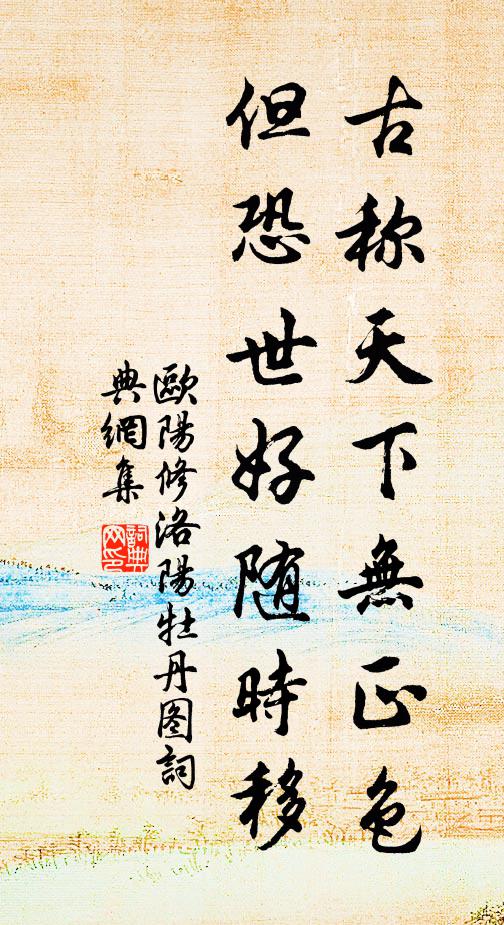 古称天下無正色
但恐世好随時移
歐陽修洛陽牡丹图詞
典網集
詞典
网印